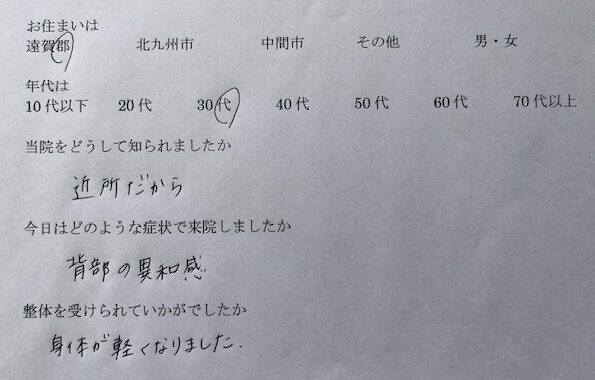 お住まいは
遠賀郡 北九州市 中間市 その他 男・女
年代は
10代以下 20代 30代 40代 50代 60代 70代以上
当院をどうして知られましたか
近所だから
今日はどのような症状で来院しましたか
背部の異和感
整体を受けられていかがでしたか
身体が軽くなりました.